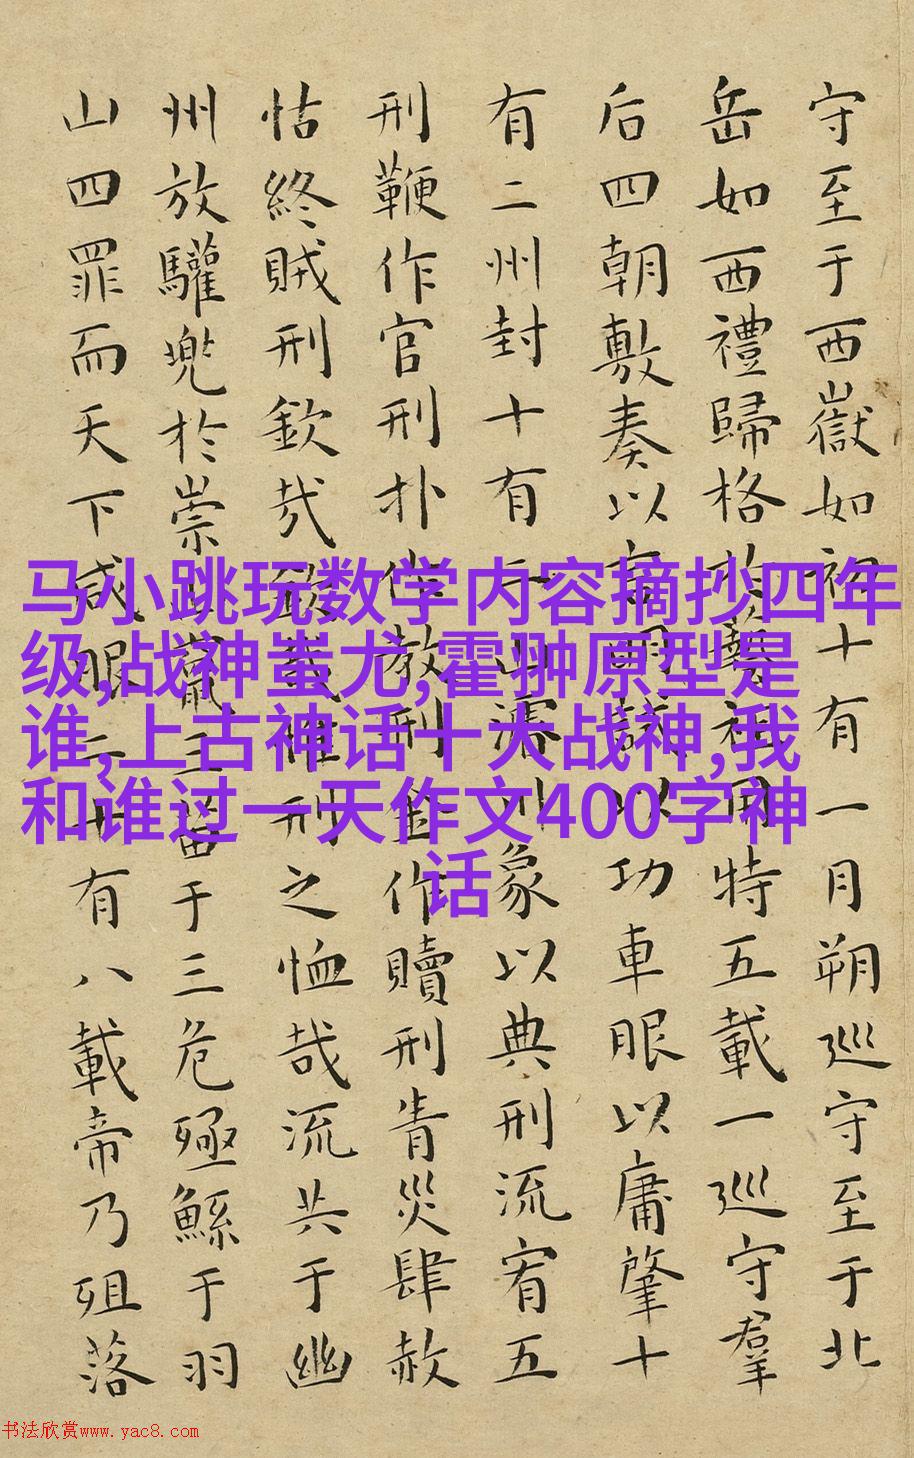 守至于西嶽如初十有一月朔巡守至于北
岳如西禮歸格於藝祖用特五載一巡守羣
后四朝敷奏以言明試以功車服以庸肇十
有二州封十有二山濬川象以典刑流宥五
刑鞭作官刑扑作教刑金作贖刑眚災肆赦
怙終賊刑欽哉欽哉惟刑之恤哉流共于幽
州放驩兜於崇山竄三苗于三危殛鯀于羽
山四罪而天下咸服二十有八載帝乃殂落
马小跳玩数学内容摘抄四年
级,战神蚩尤,霍翀原型是
谁,上古神话十大战神,我
和谁过一天作文400字神
话
书法欣赏www.yac8.com